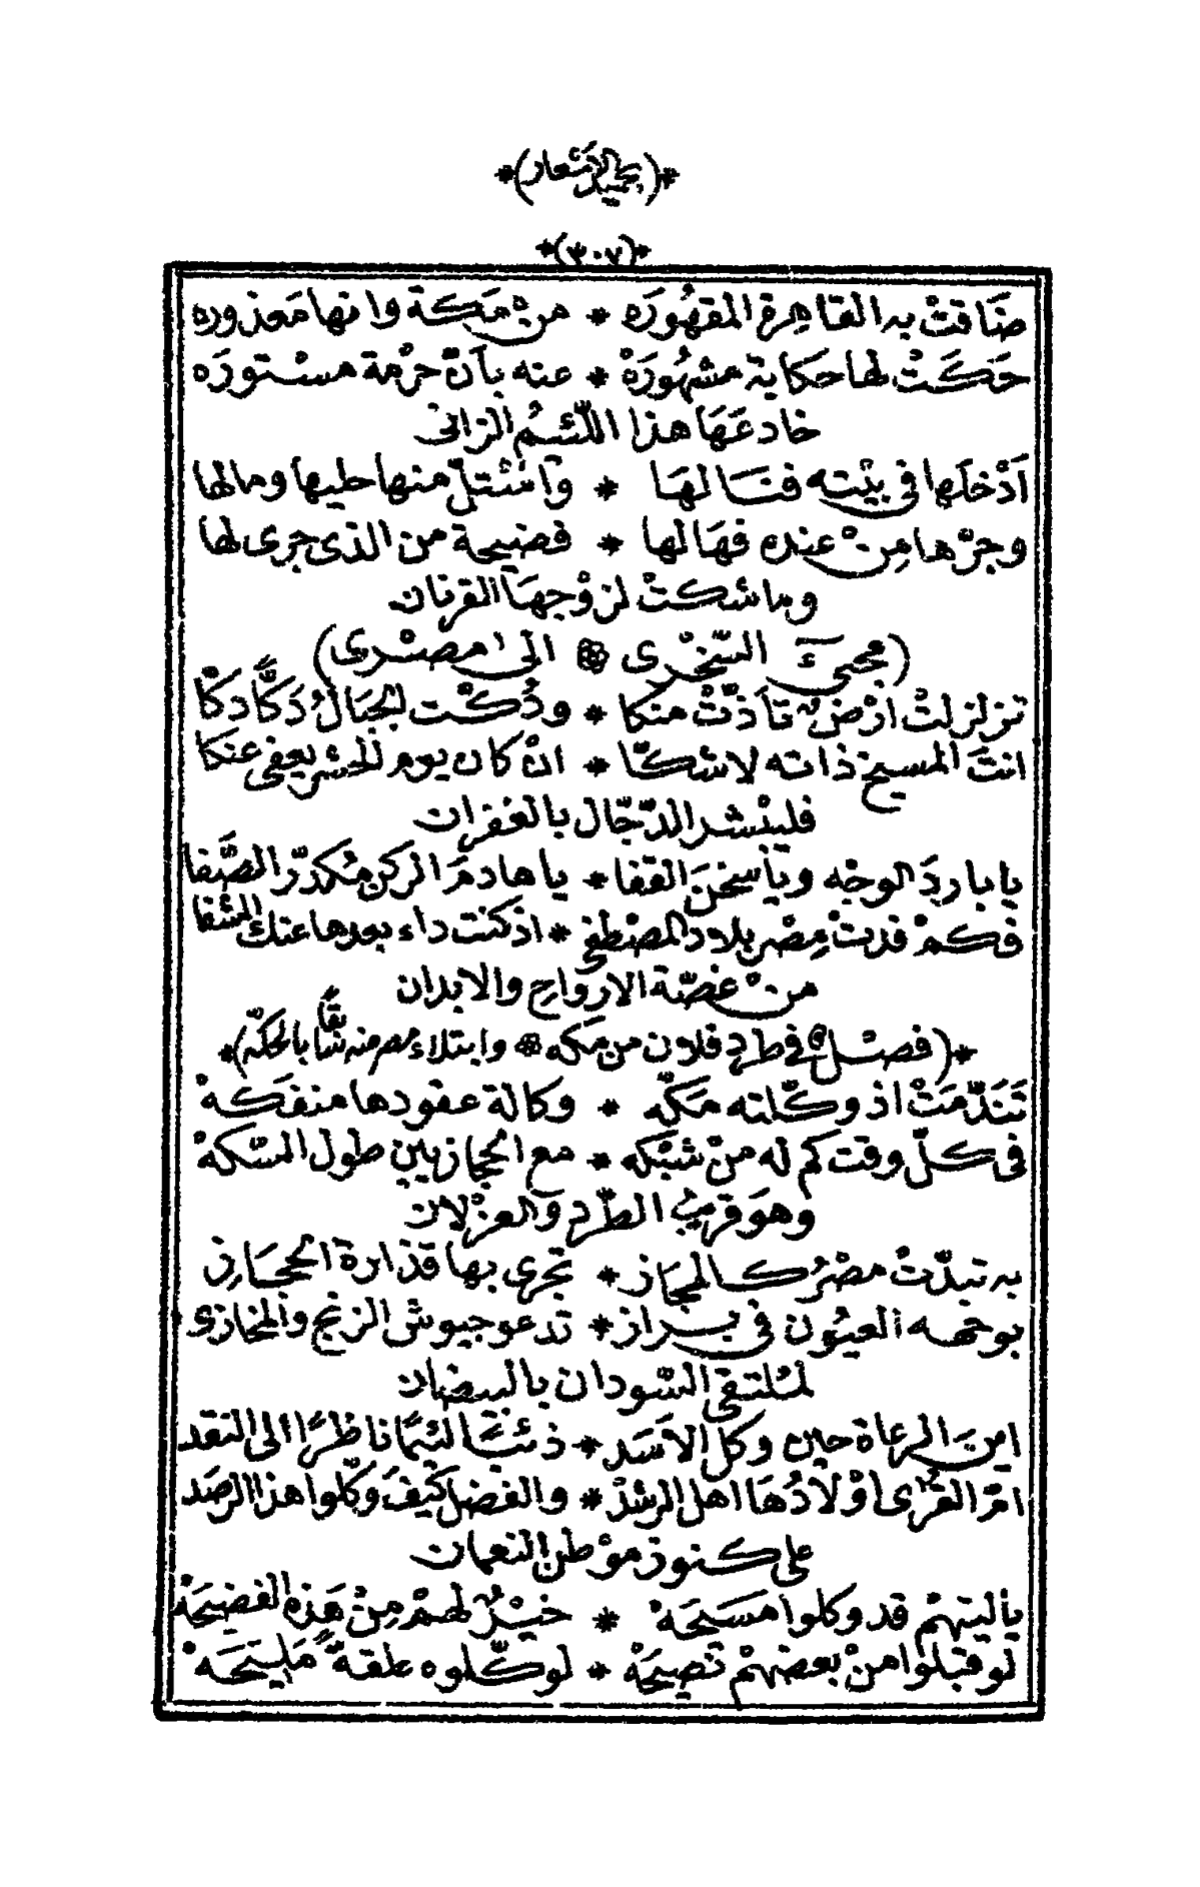 *(بحميد الاشعار)*
*(٣٠٧)*
ضَاقتْ به القاهرة المقهُورَه * من مَكة وانها مَعذوره
حَكَتْ لها حكاية مشهُورَهْ * عنه بأنّ حرْمة مسْتورَه
خادعَهَا هذا اللّئيمُ الزانى
اَدْخلَها فى بيْته فنَالهَا * واسْتلّ منها حليها ومالها
وجرّها مِنْ عنده فهَالها * فضيحة من الذى جرى لها
وما شكتْ لزوْجهَا القرنان
(مجىءَ السّخْرى ۞ الى مصْرى)
تزلزلتْ ارْضٌ تأذّتْ منكا * ودُكّت الجبَالُ دَكًّا دكّا
انتَ المسيخ ذاته لا شكّا * انْ كان يوم الحشر يعفى عنكا
فليبْشر الدّجّال بالغفران
يا باردَ الوجْه ويا سخنَ القفا * يا هادمَ الركن مُكدّر الصّفا
فكمْ فدتْ مِصْر بلاد المصْطفى * اذ كنت داء بعدها عنك الشفا
منْ غصّة الارواح والابدان
*(فصْل فى طرد فلان من مكه ۞ وابتلاء مصر منه بالحكّه)*
تَنَدّمَتْ اذ وكّلته مَكّه * وكالة عقودها منفكّهْ
فى كلّ وقت كم له منْ شبْكه * مع الحجازيين طول السّكهْ
وهوَ قريبُ الطّرد والعزْلان
به تبدّتْ مصْرُ كالمجاز * تجرى بها قذارة الحجَازى
بوجْهه العيُون فى براز * تدعو جيوش الزنج والمخازى
لمُلتقى السّودان بالبيضان
اينَ الرعاة حين وكل الاَسَد * ذئبًا لئيمًا ناظرًا الى النقد
امّ القُرى اوْلادُهَا اهل الرشدْ * والفضل كيْفَ وكّلوا هذا الرصَد
على كنوز موْطن النعمان
ياليتهمْ قد وكلوا مسَيحَهْ * خيْرٌ لهمْ مِنْ هَذه الفضيحَهْ
لو قبلوا منْ بعضهمْ نصيحَهْ * لوكّلوه علقةً مَليحَهْ